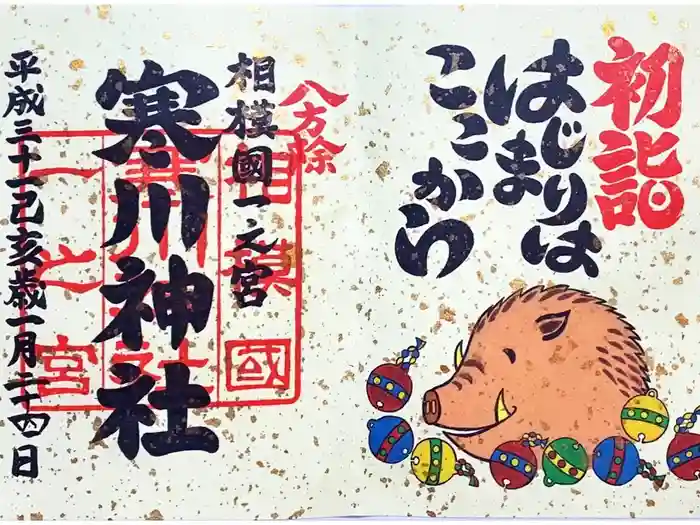 初詣
はじまりは
ここから
八方除
相模國一之宮
寒川神社
平成三十一己亥歳一月二十四日
相模國
寒川神社
一之宮